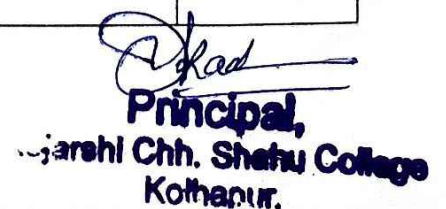 Principal,
Chh. Shahu College
Kolhapur.